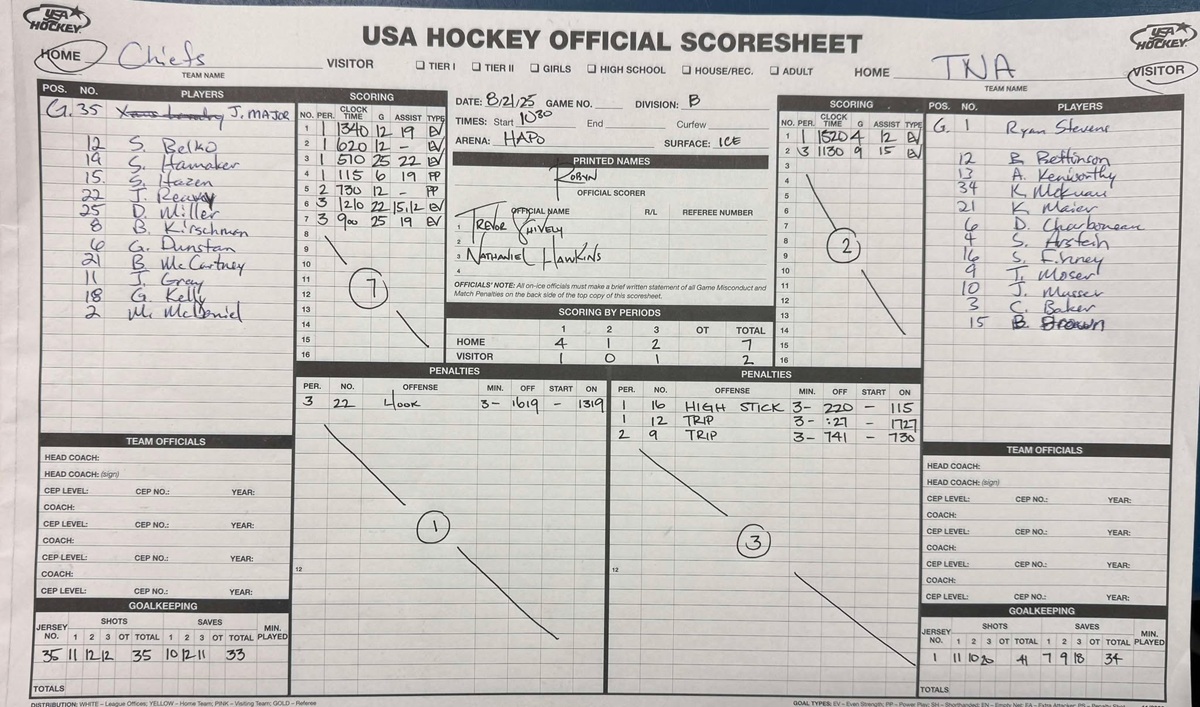 USA HOCKEY
USA HOCKEY
USA HOCKEY OFFICIAL SCORESHEET
HOME Chiefs VISITOR
TEAM NAME
☐ TIER I ☐ TIER II ☐ GIRLS ☐ HIGH SCHOOL ☐ HOUSE/REC. ☐ ADULT
HOME TNA VISITOR
TEAM NAME
POS. NO. PLAYERS
G. 35 J. MAJOR
12 S. Belko
19 S. Hamaker
15 S. Hazen
22 J. Reavoy
25 D. Miller
8 B. Kirschman
6 G. Dunstan
21 B. McCartney
11 J. Gray
18 G. Kelly
2 M. McDaniel
SCORING
NO. PER. CLOCK TIME G ASSIST TYPE
1 1 1340 12 19 EV
2 1 620 12 - EV
3 1 510 25 22 EV
4 1 115 6 19 PP
5 2 730 12 - PP
6 3 1210 22 15,12 EV
7 3 900 25 19 EV
8
9
10
11
12
13
14
15
16
7
DATE: 8/21/25 GAME NO. DIVISION: B
TIMES: Start 1030 End Curfew
ARENA: HAPO SURFACE: ICE
PRINTED NAMES
ROBYN
OFFICIAL SCORER
OFFICIAL NAME R/L REFEREE NUMBER
1 TREVOR SHIVELY
2
3 NATHANIEL HAWKINS
4
OFFICIALS' NOTE: All on-ice officials must make a brief written statement of all Game Misconduct and
Match Penalties on the back side of the top copy of this scoresheet.
SCORING BY PERIODS
1 2 3 OT TOTAL
HOME 4 1 2 7
VISITOR 1 0 1 2
SCORING
NO. PER. CLOCK TIME G ASSIST TYPE
1 1 1520 4 12 EV
2 3 1130 9 15 EV
3
4
5
6
7
8
9
10
11
12
13
14
15
16
2
POS. NO. PLAYERS
G. 1 Ryan Stevens
12 B. Bettinson
13 A. Keniworthy
34 K. McKuan
21 K. Maier
6 D. Charboneau
4 S. Arstein
16 S. Finney
9 T. Moser
10 J. Musser
3 C. Baker
15 B. Brown
PENALTIES
PER. NO. OFFENSE MIN. OFF START ON
3 22 HOOK 3- 1619 - 1319
12
1
PENALTIES
PER. NO. OFFENSE MIN. OFF START ON
1 16 HIGH STICK 3- 220 - 115
1 12 TRIP 3- :27 - 1727
2 9 TRIP 3- 741 - 730
12
3
TEAM OFFICIALS
HEAD COACH:
HEAD COACH: (sign)
CEP LEVEL: CEP NO.: YEAR:
COACH:
CEP LEVEL: CEP NO.: YEAR:
COACH:
CEP LEVEL: CEP NO.: YEAR:
COACH:
CEP LEVEL: CEP NO.: YEAR:
GOALKEEPING
JERSEY NO. SHOTS 1 2 3 OT TOTAL SAVES 1 2 3 OT TOTAL MIN. PLAYED
35 11 12 12 35 10 12 11 33
TOTALS
TEAM OFFICIALS
HEAD COACH:
HEAD COACH: (sign)
CEP LEVEL: CEP NO.: YEAR:
COACH:
CEP LEVEL: CEP NO.: YEAR:
COACH:
CEP LEVEL: CEP NO.: YEAR:
COACH:
CEP LEVEL: CEP NO.: YEAR:
GOALKEEPING
JERSEY NO. SHOTS 1 2 3 OT TOTAL SAVES 1 2 3 OT TOTAL MIN. PLAYED
1 11 10 20 41 7 9 18 34
TOTALS
DISTRIBUTION: WHITE – League Offices; YELLOW – Home Team; PINK – Visiting Team; GOLD – Referee
GOAL TYPES: EV – Even Strength; PP – Power Play; SH – Shorthanded; EN – Empty Net; EA – Extra Attacker; PS – Penalty Shot